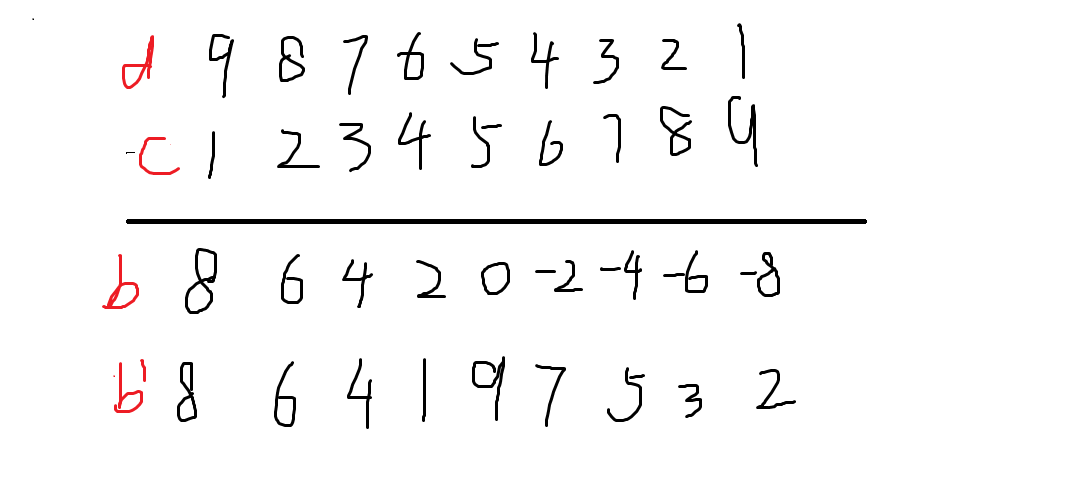 d 9 8 7 6 5 4 3 2 1
-c 1 2 3 4 5 6 7 8 9
b 8 6 4 2 0 -2 -4 -6 -8
b' 8 6 4 1 9 7 5 3 2